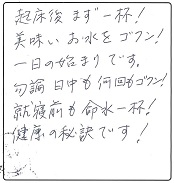 起床後 まず一杯!
美味い お水を ゴクン!
一日の始まりです。
勿論 日中も 何回もゴクン!
就寝前も 命水一杯!
健康の秘訣です!